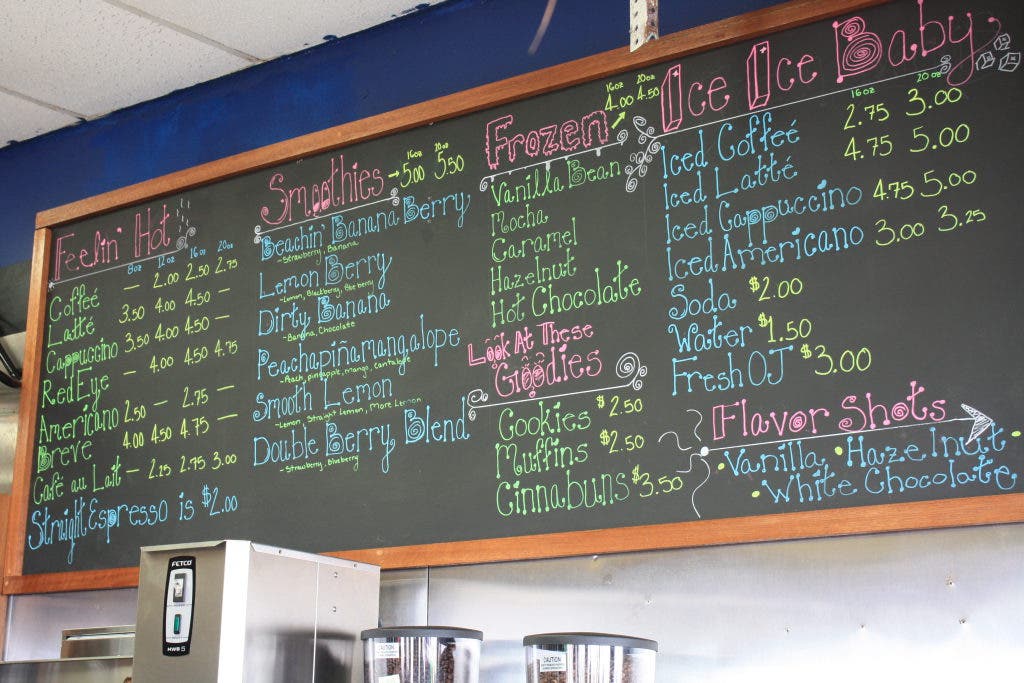 Feelin' Hot
8oz 12oz 16oz 20oz
Coffeé — 2.00 2.50 2.75
Latté 3.50 4.00 4.50 —
Cappuccino 3.50 4.00 4.50 —
Red Eye — 4.00 4.50 4.75
Americano 2.50 — 2.75 —
Breve 4.00 4.50 4.75 —
Café au Lait — 2.25 2.75 3.00
Straight Espresso is $2.00
Smoothies → 16oz 5.00 20oz 5.50
Beachin' Banana Berry
- Strawberry, Banana
Lemon Berry
- Lemon, Blackberry, Blueberry
Dirty Banana
- Banana, Chocolate
Peachapiñamangalope
- Peach, pineapple, mango, cantalope
Smooth Lemon
- Lemon, Straight Lemon, More Lemon
Double Berry Blend
- Strawberry, Blueberry
Frozen 16oz 4.00 20oz 4.50
Vanilla Bean
Mocha
Caramel
Hazelnut
Hot Chocolate
Look At These
Goodies
Cookies $2.50
Muffins $2.50
Cinnabuns $3.50
Ice Ice Baby
16oz 20oz
Iced Coffeé 2.75 3.00
Iced Latté 4.75 5.00
Iced Cappuccino 4.75 5.00
Iced Americano 3.00 3.25
Soda $2.00
Water $1.50
Fresh OJ $3.00
Flavor Shots
• Vanilla • Hazelnut •
• White Chocolate
FETCO
HWB 5
CAUTION
CAUTION